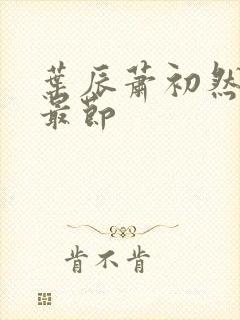 葉辰蕭初然
最節
肯不肯